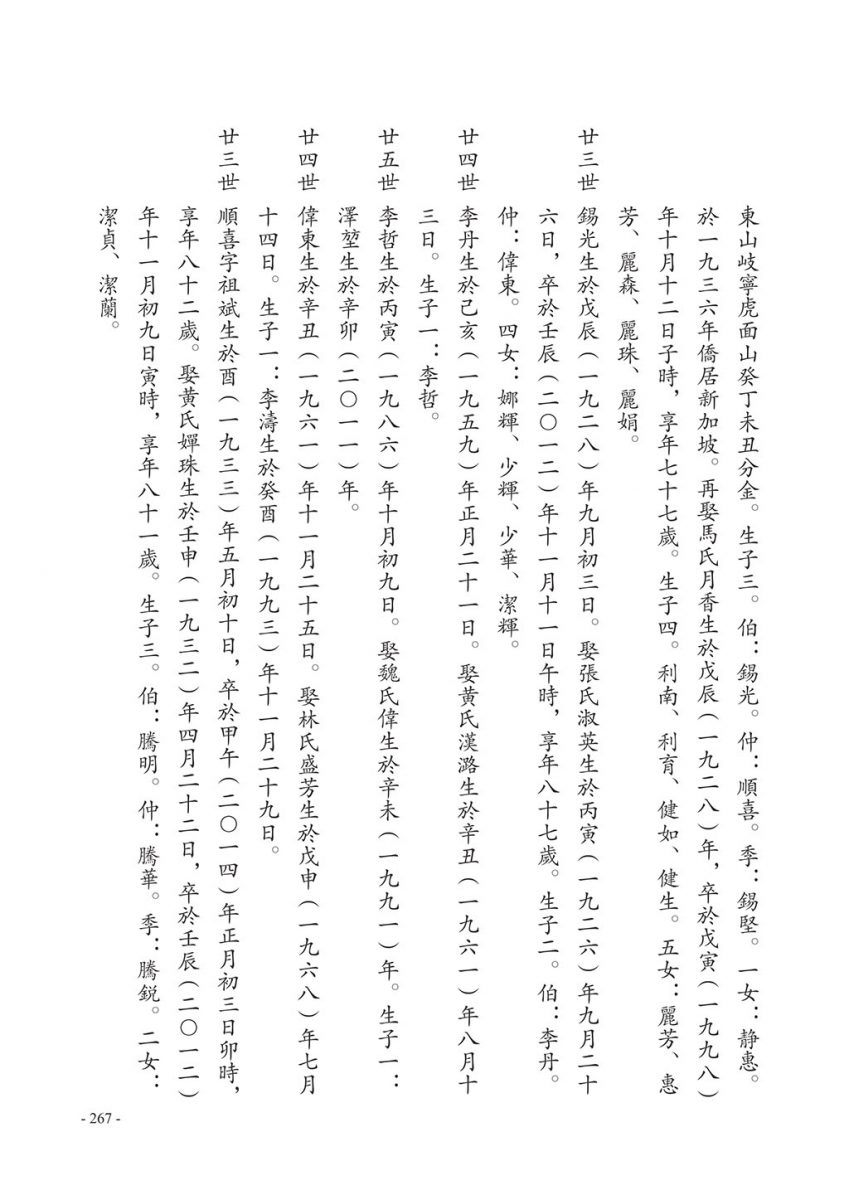 東山岐寧虎面山癸丁未丑分金。生子三。伯：錫光。仲：順喜。季：錫堅。一女：静惠。
於一九三六年僑居新加坡。再娶馬氏月香生於戊辰（一九二八）年，卒於戊寅（一九九八）
年十月十二日子時，享年七十七歲。生子四。利南、利育、健如、健生。五女：麗芳、惠
芳、麗森、麗珠、麗娟。
廿三世 錫光生於戊辰（一九二八）年九月初三日。娶張氏淑英生於丙寅（一九二六）年九月二十
六日，卒於壬辰（二〇一二）年十一月十一日午時，享年八十七歲。生子二。伯：李丹。
仲：偉東。四女：娜輝、少輝、少華、潔輝。
廿四世 李丹生於己亥（一九五九）年正月二十一日。娶黃氏漢潞生於辛丑（一九六一）年八月十
三日。生子一：李哲。
廿五世 李哲生於丙寅（一九八六）年十月初九日。娶魏氏偉生於辛未（一九九一）年。生子一：
澤堃生於辛卯（二〇一一）年。
廿四世 偉東生於辛丑（一九六一）年十一月二十五日。娶林氏盛芳生於戊申（一九六八）年七月
十四日。生子一：李濤生於癸酉（一九九三）年十一月二十九日。
廿三世 順喜字祖斌生於酉（一九三三）年五月初十日，卒於甲午（二〇一四）年正月初三日卯時，
享年八十二歲。娶黃氏嬋珠生於壬申（一九三二）年四月二十二日，卒於壬辰（二〇一二）
年十一月初九日寅時，享年八十一歲。生子三。伯：騰明。仲：騰華。季：騰鋭。二女：
潔貞、潔蘭。
- 267 -